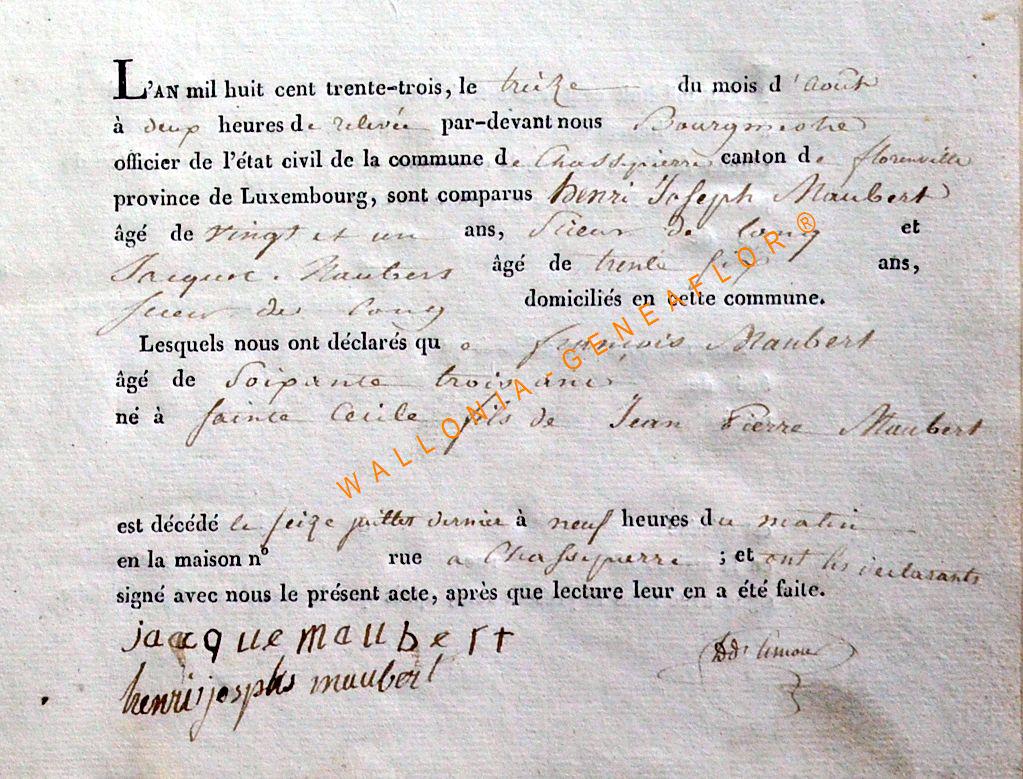 L'AN mil huit cent trente-trois, le treize du mois d'août
à deux heures de relevée par-devant nous Bourgmestre
officier de l'état civil de la commune de Chassepierre canton de florenville
province de Luxembourg, sont comparus henri Joseph Maubert
âgé de vingt et un ans, Scieur de long et
Jacque Maubert âgé de trente six ans,
scieur de long domiciliés en cette commune.
Lesquels nous ont déclarés que françois Maubert
âgé de Soixante trois ans
né à sainte Cecile fils de Jean Pierre Maubert
est décédé le seize juillet dernier à neuf heures du matin
en la maison nº rue a Chassepierre ; et ont les declarants
signé avec nous le présent acte, après que lecture leur en a été faite.
jacque maubert
henri josephs maubert
WALLONIA-GENEAFLOR®